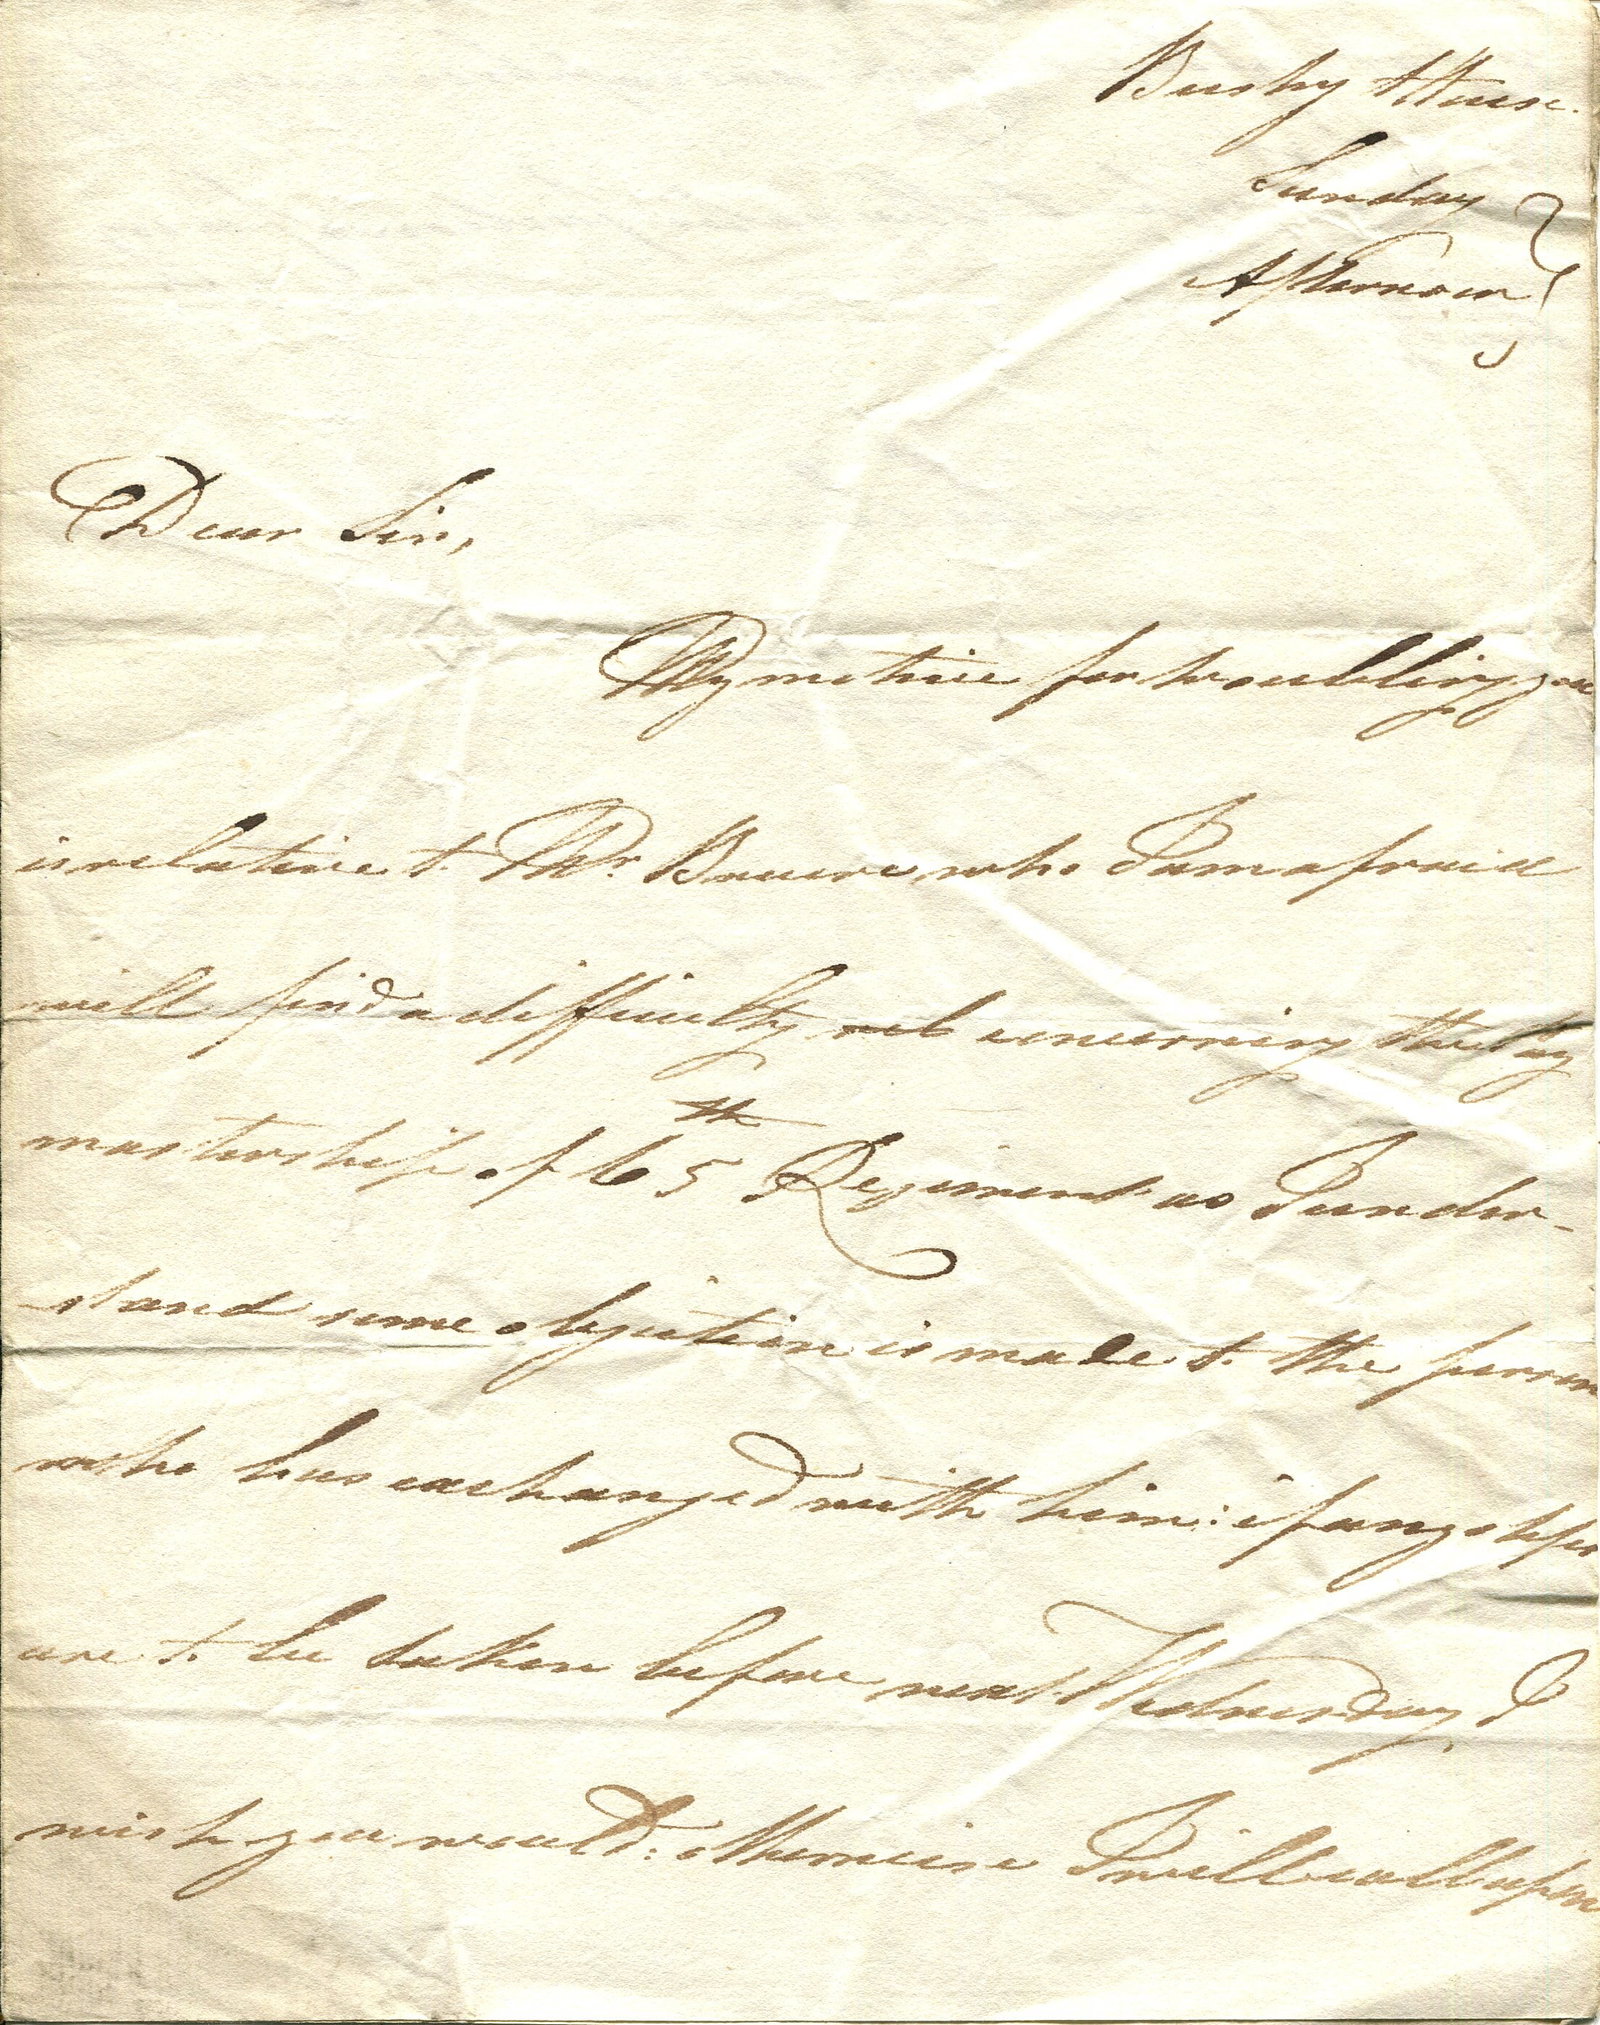 Bushy House.
Sunday
Afternoon
Dear Sir,
My motive for troubling you
is relative to Mr. Bruere who I am afraid
will find a difficulty concerning the Pay
mastership of 65th Regiment as I under-
-stand some objection is made to the person
who has exchanged with him: if any steps
are to be taken before next Wednesday, I
wish you would: otherwise I will call upon